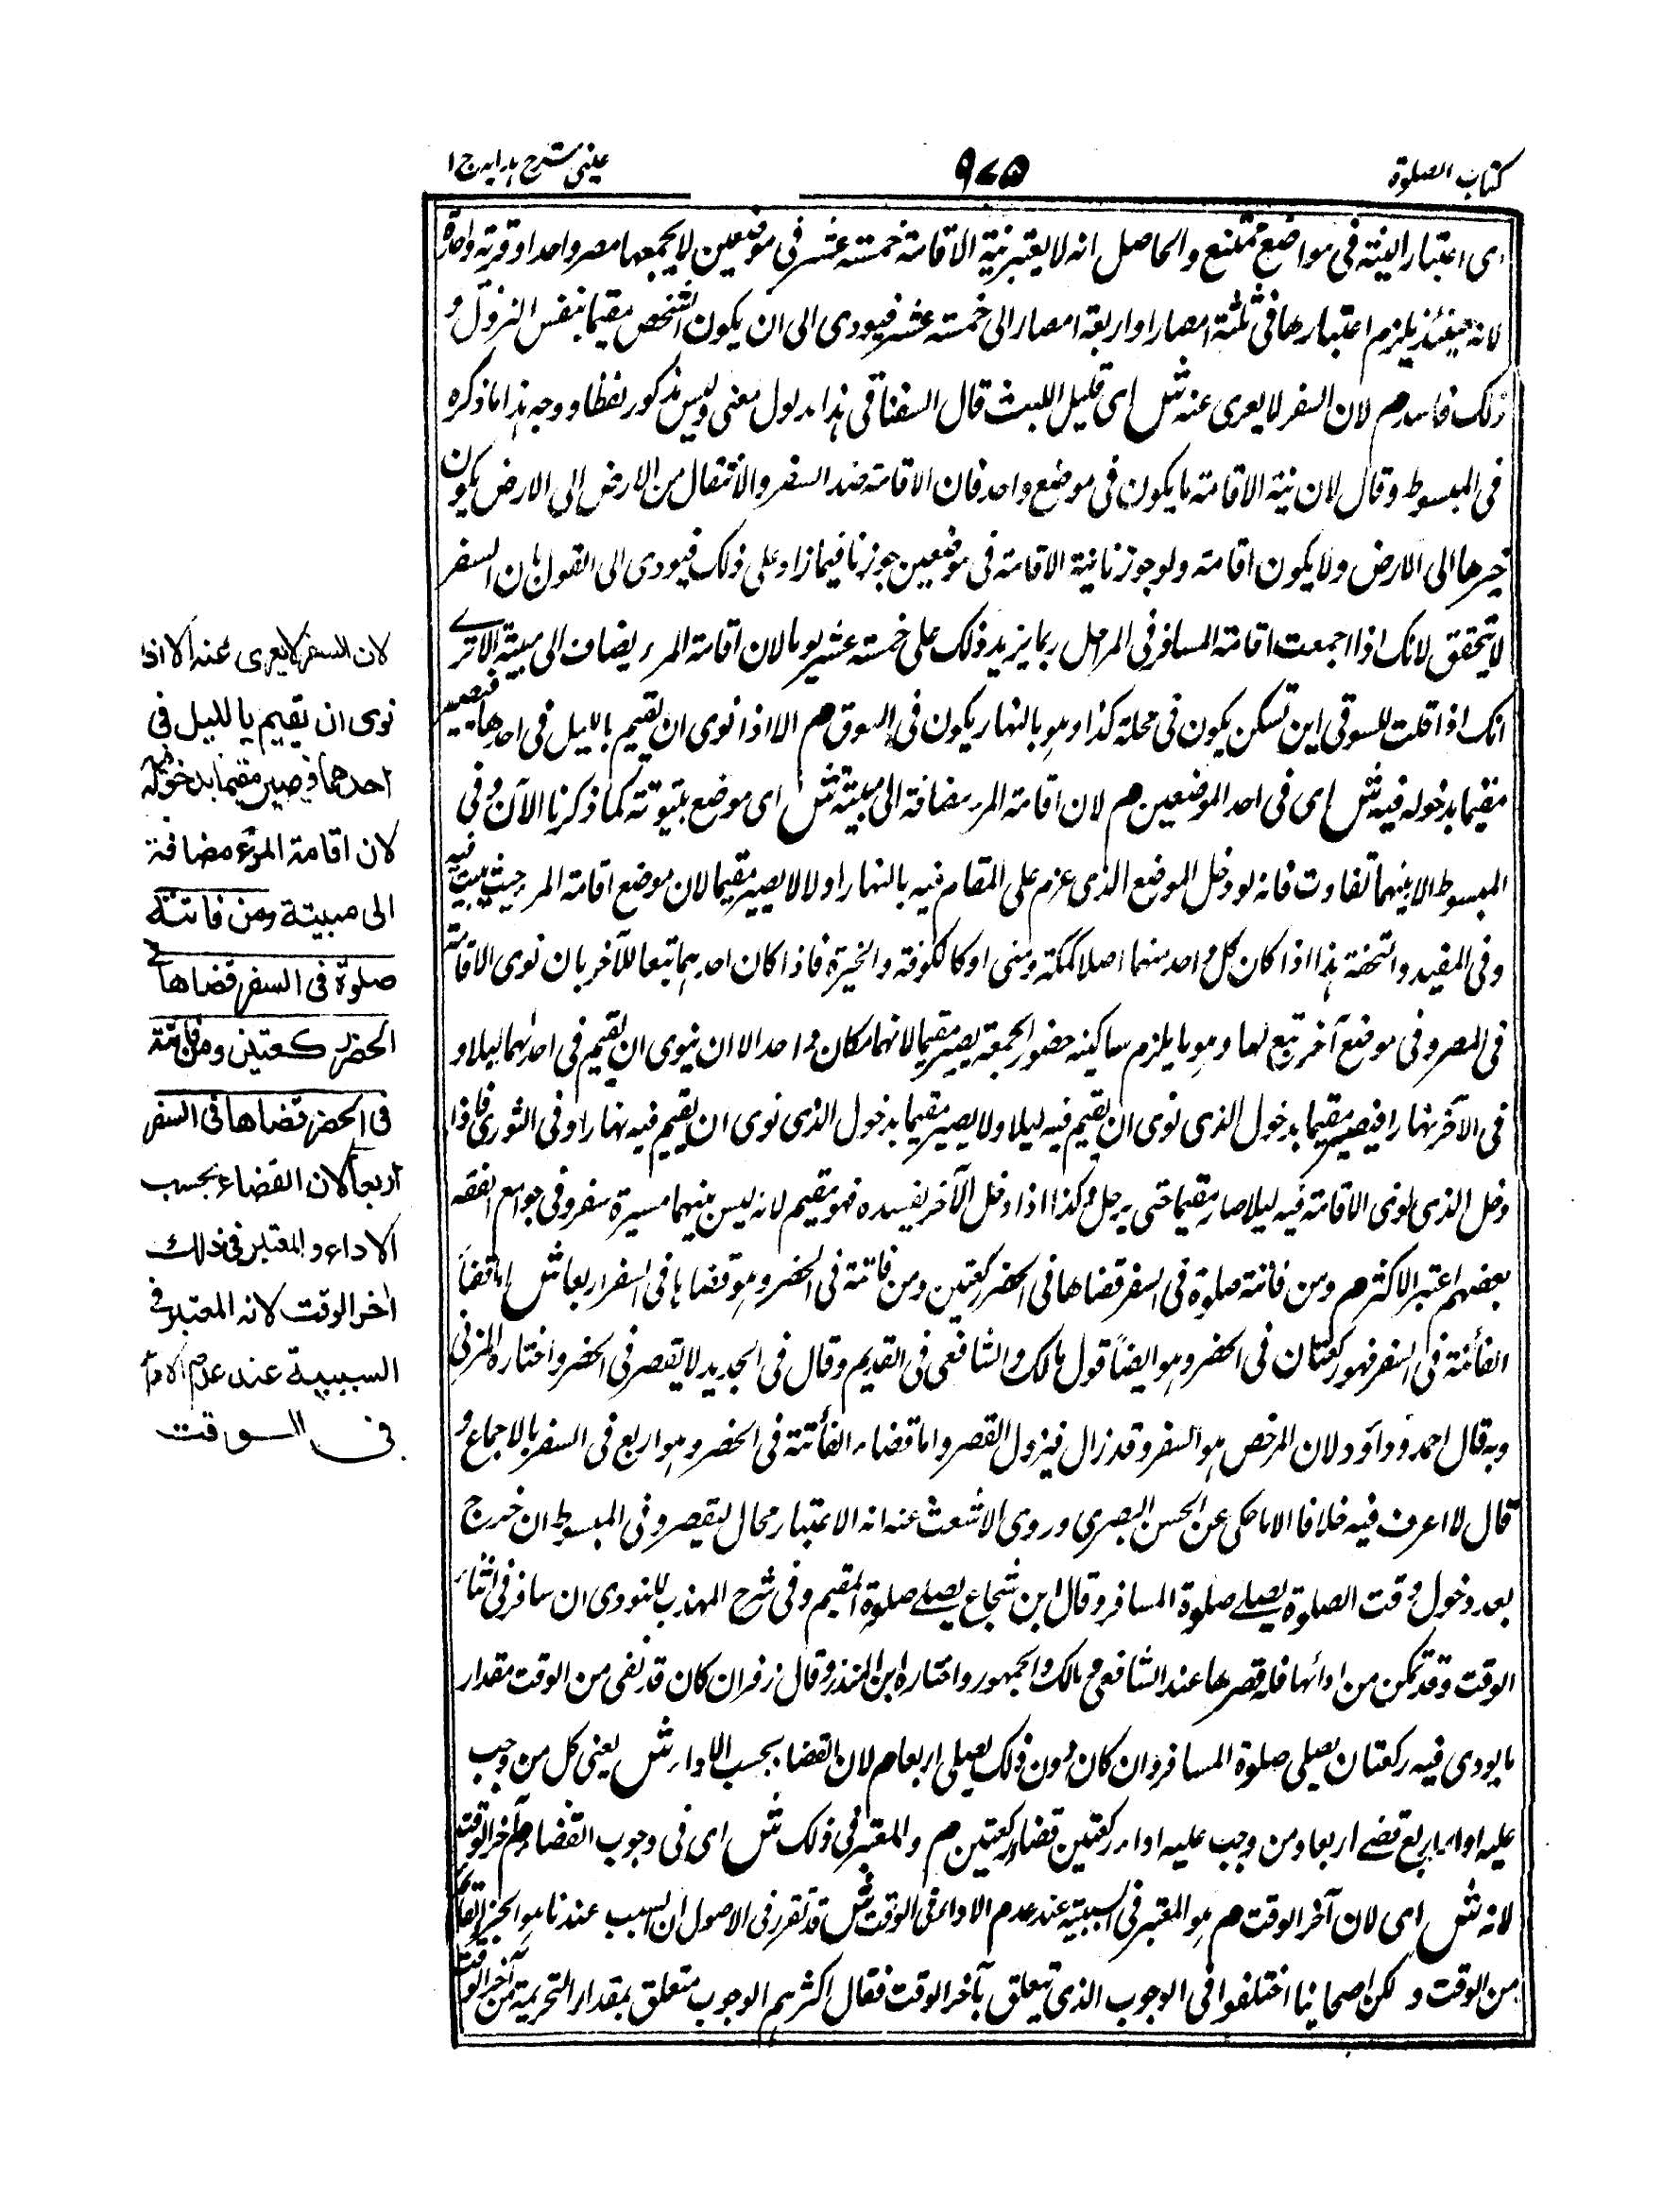 كتاب الصلوة
٩٧٥
عينى شرح هدايه ج ا
اى اعتبار النية فى مواضع ممتنع والحاصل انه لا يعتبر نية الاقامة خمسة عشر فى موضعين لا يجمعهما مصر واحد او قرية واحدة
لانه حينئذ يلزم اعتبارها فى ثلثة امصار او اربعة امصار الى خمسة عشر فيودى الى ان يكون الشخص مقيما بنفس النزول و
ذلك فاسد م لان السفر لا يعرى عنه ش اى قليل اللبث قال السفناقى هذا مدلول معنى وليس مذكور لفظا ووجه هذا ما ذكره
فى المبسوط وقال لان نية الاقامة ما يكون فى موضع واحد فان الاقامة ضد السفر والانتقال من الارض الى الارض يكون
ضربا الى الارض ولا يكون اقامة ولو جوزنا نية الاقامة فى موضعين جوزنا فيما زاد على ذلك فيودى الى القول بان السفر
لا يتحقق لانك اذا اجمعت اقامة المسافر فى المراحل ربما يزيد ذلك على خمسة عشر يوما لان اقامة المرء يضاف الى مبيته الا ترى
انك اذا قلت للسوقى اين تسكن يكون فى محلة كذا وهو بالنهار يكون فى السوق م الا اذا نوى ان يقيم بالليل فى احدها فيصير
مقيما بدخوله فيه ش اى فى احد الموضعين م لان اقامة المرء مضافة الى مبيته ش اى موضع بيتوتته كما ذكرنا الآن و فى
المبسوط الا بينهما تفاوت فانه لو دخل الموضع الذى عزم على المقام فيه بالنهار اولا لا يصير مقيما لان موضع اقامة المرء حيث يبيت فيه
وفى المفيد والتحفة هذا اذا كان كل واحد منهما اصلا كمكة ومنى او كالكوفة والحيرة فاذا كان احدهما تبعا للآخر بان نوى الاقامة
فى المصر و فى موضع آخر تبع لها وهو ما يلزم ساكنه حضور الجمعة يصير مقيما لانهما مكان واحد الا ان ينوى ان يقيم فى احدهما ليلا و
فى الآخر نهارا فيصير مقيما بدخول الذى نوى ان يقيم فيه ليلا ولا يصير مقيما بدخول الذى نوى ان يقيم فيه نهارا وفى الثورى فاذا
دخل الذى نوى الاقامة فيه ليلا صار مقيما حتى يرحل وكذا اذا دخل الآخر يفسده فهو مقيم لانه ليس بينهما مسيرة سفر وفى جوامع الفقه
بعضهم اعتبر الاكثر م ومن فاتته صلوة فى السفر قضاها فى الحضر ركعتين ومن فاتته فى الحضر وهو قضاها فى السفر اربعا ش اما قضاء
الفائتة فى السفر فهو ركعتان فى الحضر وهو ايضا قول مالك والشافعى فى القديم وقال فى الجديد لا يقصر فى الحضر واختاره المزنى
وبه قال احمد و داؤد لان المرخص هو السفر وقد زال فيزول القصر واما قضاء الفائتة فى الحضر وهو اربع فى السفر بالاجماع و
قال لا اعرف فيه خلافا الا ما حكى عن الحسن البصرى وروى الاشعث عنه انه الاعتبار بحال ليقصر وفى المبسوط ان خرج
بعد دخول وقت الصلوة يصلى صلوة المسافر وقال ابن شجاع يصلى صلوة المقيم وفى شرح المهذب للنووى ان سافر فى اثناء
الوقت وقد تمكن من ادائها فله قصرها عند الشافعى و مالك والجمهور واختاره ابن المنذر وقال زفر ان كان قد بقى من الوقت مقدار
ما يودى فيه ركعتان يصلى صلوة المسافر وان كان دون ذلك يصلى اربعا م لان القضاء بحسب الاداء ش يعنى كل من وجب
عليه اداء اربع قضى اربعا ومن وجب عليه اداء ركعتين قضاء ركعتين م والمعتبر فى ذلك ش اى فى وجوب القضاء م آخر الوقت
لانه ش اى لان آخر الوقت م هو المعتبر فى السببية عند عدم الاداء فى الوقت ش قد تقرر فى الاصول ان السبب عندنا هو الجزء القائم
من الوقت و لكن اصحابنا اختلفوا فى الوجوب الذى يتعلق بآخر الوقت فقال اكثرهم الوجوب متعلق بمقدار التحريمة من آخر الوقت
لان السفر لا يعرى عنه الا اذا
نوى ان يقيم بالليل فى
احدهما فيصير مقيما بدخوله فيه
لان اقامة المرء مضافة
الى مبيته ومن فاتته
صلوة فى السفر قضاها فى
الحضر ركعتين ومن فاتته
فى الحضر قضاها فى السفر
اربعا لان القضاء بحسب
الاداء والمعتبر فى ذلك
اخر الوقت لانه المعتبر فى
السببية عند عدم الاداء
فى الوقت